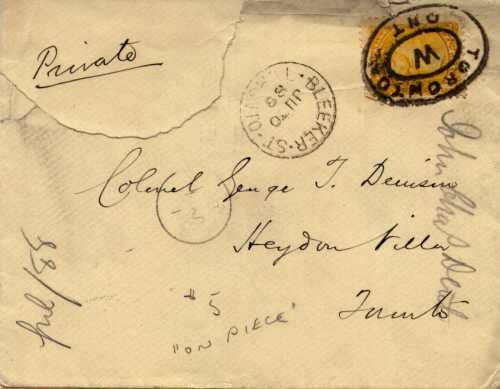 Private
TORONTO ONT
W
BLEEKER-ST-
88
Colonel George T. Denison
Heydon Villa
Toronto
July/88
3
# 5
"ON PIECE"